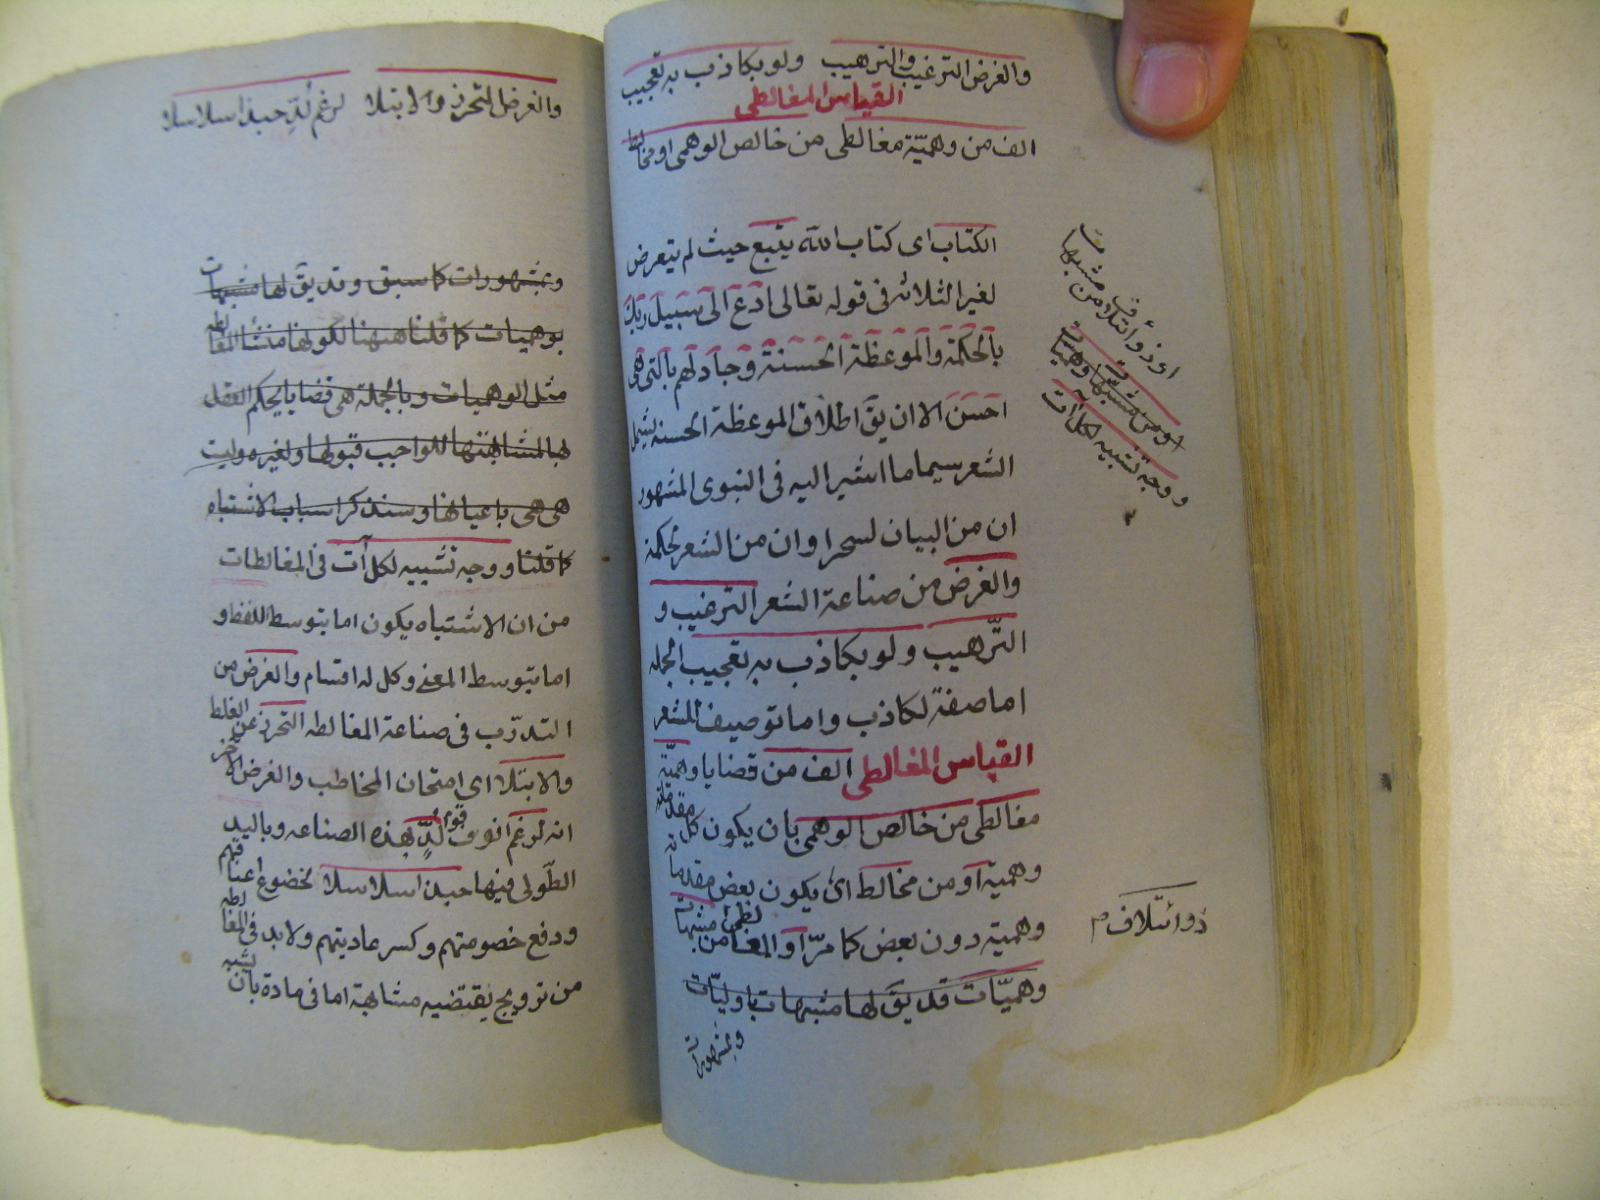 والغرض الترغيب والترهيب ولو بكاذب به تعجيب
القياس المغالطى
الف من وهميّة مغالطى من خالص الوهمى او مخالط
الكتاب اى كتاب الله يتبع حيث لم يتعرض
لغير الثلاثه فى قوله تعالى ادع الى سبيل ربك
بالحكمة والموعظة الحسنة وجادلهم بالتى هى
احسن الا ان يقَ اطلاق الموعظة الحسنه يشمل
الشعر سيما ما اشير اليه فى النبوى المشهور
ان من البيان لسحرا وان من الشعر لحكمة
والغرض من صناعة الشعر الترغيب و
التّرهيب ولو بكاذب به تعجيب الجمله
اما صفة لكاذب واما توصيف للشعر
القياس المغالطى الف من قضايا وهميّة
مغالطى من خالص الوهمى بان يكون كل مقدماته
وهمية او من مخالط اى يكون بعض مقدماته
وهمية دون بعض كما مرّ او المغالطى من مشبهات
وهميّات قد يقَ لها مشبهات باوليّات
وبمشهورات
او ذو ائتلاف من مشبهات
او من مشبهات وهميات
ووجه تشبيه لكل آت
ذو ائتلاف م
والغرض التحرز والابتلا لرغم لُدّ حبذا سلاسلا
وبمشهورات كما سبق وقد يقَ لها مشبهات
بوهميات كما قلنا ههنا لكونها منشأ المغالطه
مثل الوهميات وبالجملة هى قضايا يحكم العقل
بها لمشابهتها للواجب قبولها ولغيره وليت
هى هى باعيانها وسنذكر اسباب الاشتباه
كما قلنا ووجه تشبيه لكل آت فى المغالطات
من ان الاشتباه يكون اما بتوسط اللفظ و
اما بتوسط المعنى وكل له اقسام والغرض من
التدرّب فى صناعة المغالطه التحرز عن الغلط
والابتلا اى امتحان المخاطب والغرض الآخر
انه لرغم انوف قوم لُدّ بهذه الصناعه وباليد
الطّولى فيها حبذا سلاسلا لخضوع اعناقهم
ودفع خصومتهم وكسر عاديتهم ولابد فى المغالطه
من ترويج يقتضيه مشابهة اما فى مادة بان يشبه